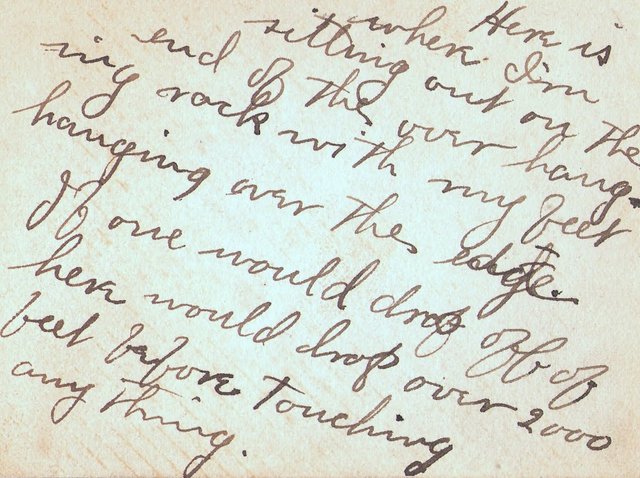 Here is
where I'm
sitting out on the
end of the over hang-
ing rock with my feet
hanging over the edge.
If one would drop off of
here would drop over 2000
feet before touching
any thing.